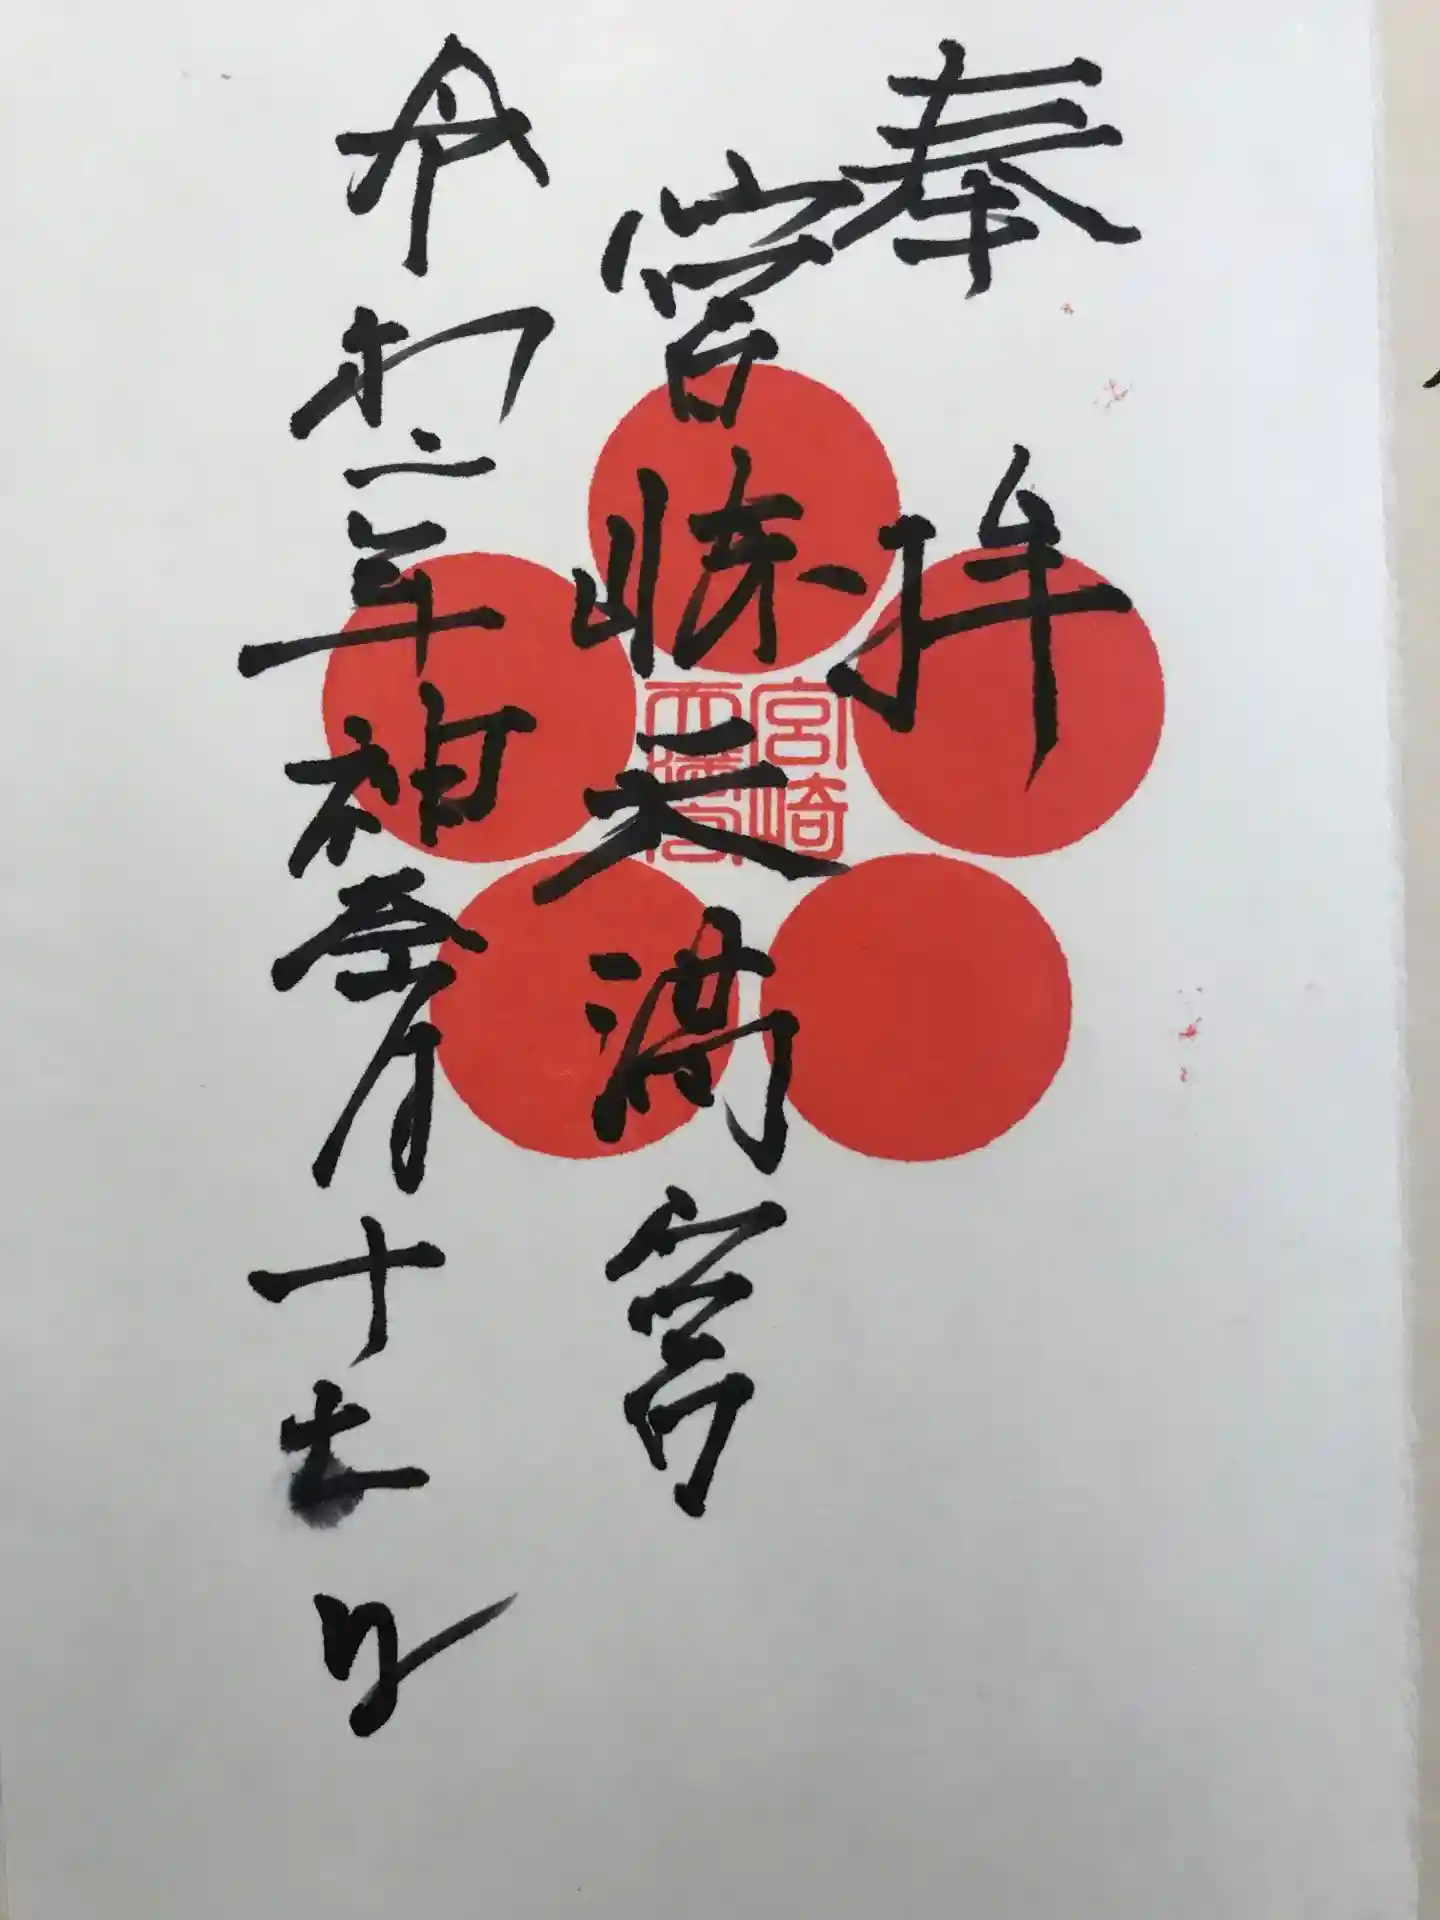 奉拝
宮崎天満宮
宮崎
天満宮
令和二年神無月十七日